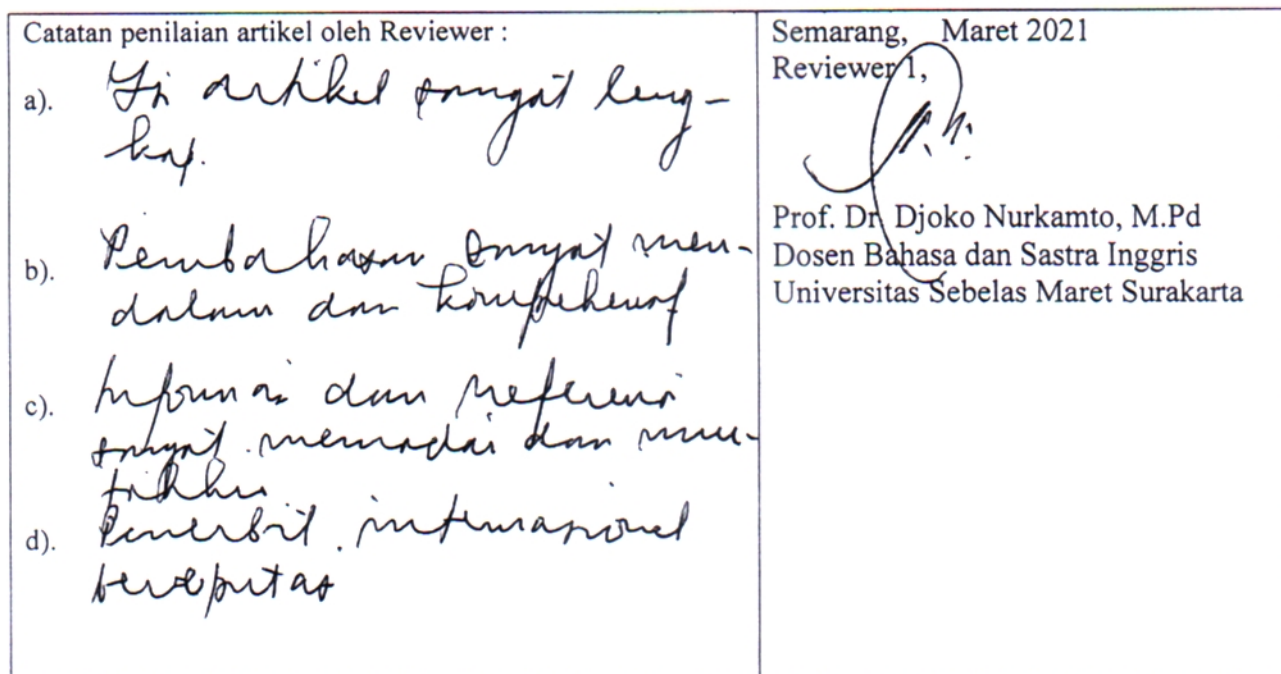 Catatan penilaian artikel oleh Reviewer :
a). Isi artikel sangat leng-
kap.
b). Pembahasan sangat men-
dalam dan komprehensif
c). Informasi dan referensi
sangat memadai dan mu-
takhir
d). Penerbit internasional
bereputas
Semarang, Maret 2021
Reviewer 1,
Prof. Dr. Djoko Nurkamto, M.Pd
Dosen Bahasa dan Sastra Inggris
Universitas Sebelas Maret Surakarta